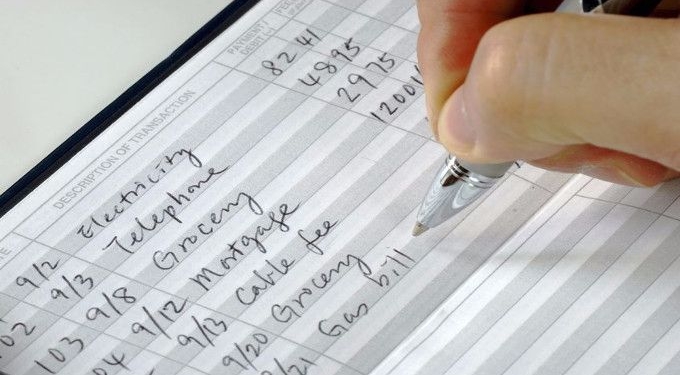 DESCRIPTION OF TRANSACTION PAYMENT/ DEBIT
9/2 Electricity 82 41
02 9/3 Telephone 48 95
103 9/8 Grocery 29 75
04 9/12 Mortgage 1200
9/13 Cable fee
9/20 Grocery
/21 Gas bill